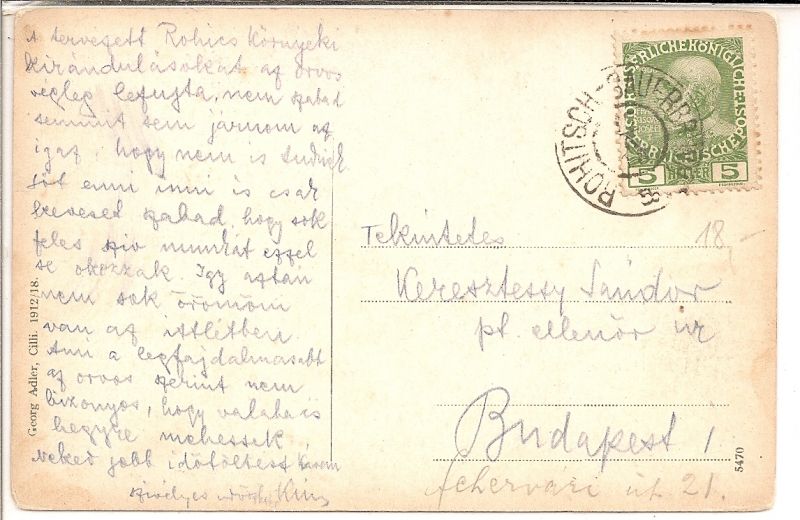 A tervezett Rohics környéki
kirándulásokat az orvos
végleg lefujta, nem szabad
semmit sem járnom az
igaz, hogy nem is tudnék
sőt enni inni is csak
keveset szabad, hogy sok
feles szív munkát ezzel
se okozzak. Igy aztán
nem sok örömöm
van az ittlétben.
Ami a legfájdalmasabb
az orvos szerint nem
bizonyos, hogy valaha is
hegyre mehessek.
Neked jobb időtöltést
szivélyes
Georg Adler, Cilli. 1912/18.
ROHITSCH-SAUERBRUNN
5 5
18,-
Tekintetes
Keresztessy Sándor
pt. ellenőr úr
Budapest I
Fehérvári út 21.
5470